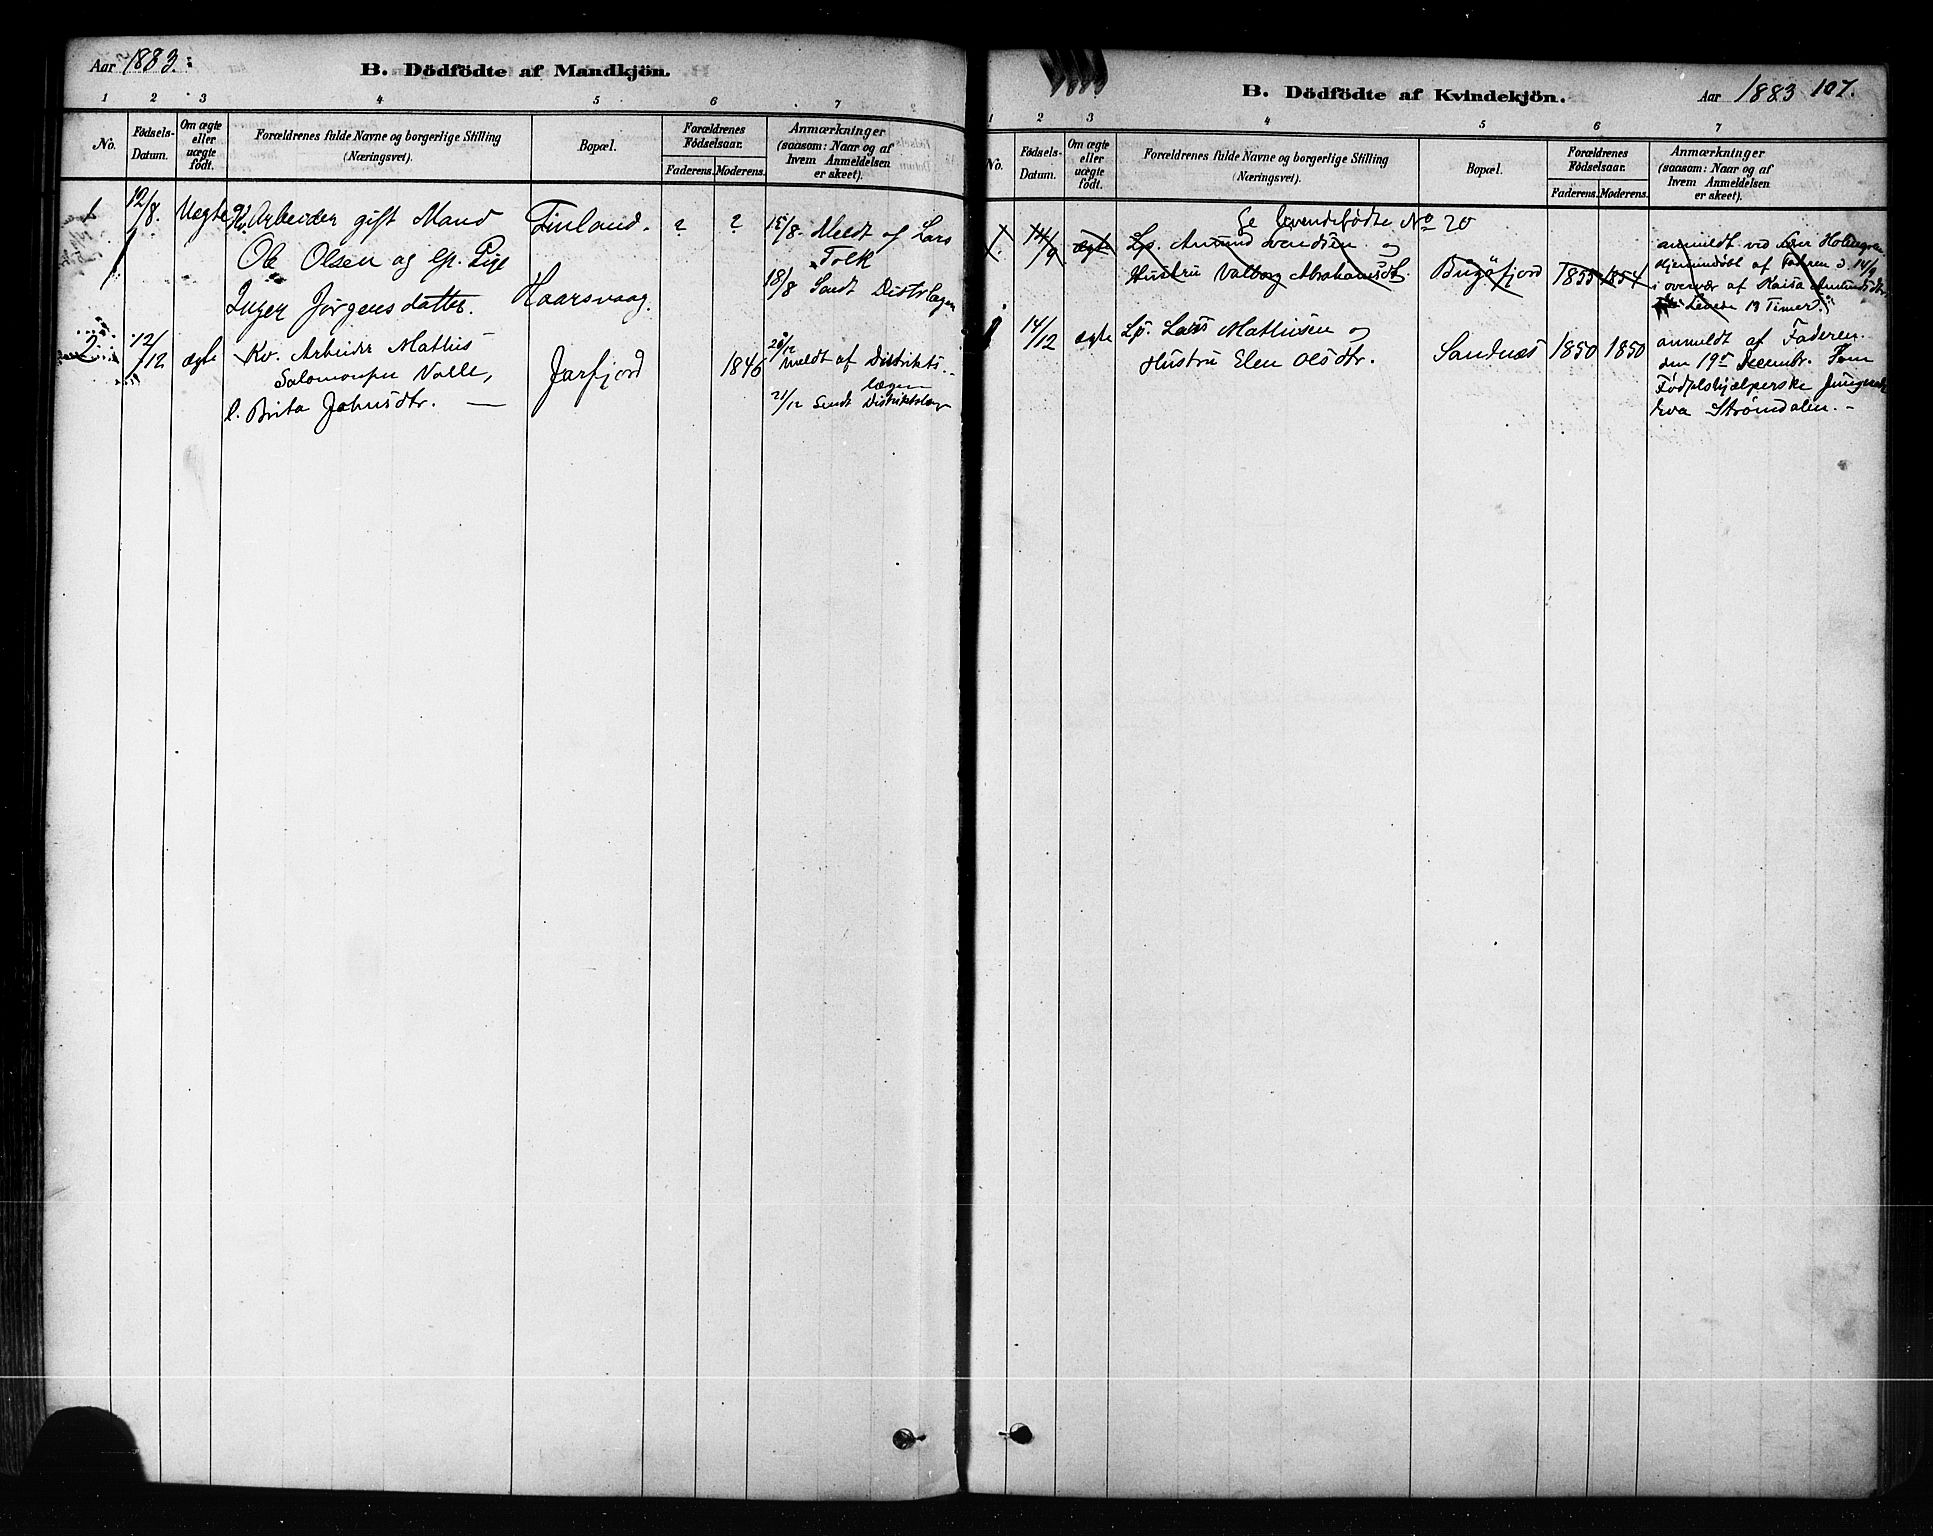 Aar 1883.
B. Dödfödte af Mandkjön.
1 2 3 4 5 6 7
No.
Födsels-
Datum.
Om ægte
eller
uægte
födt.
Forældrenes fulde Navne og borgerlige Stilling
(Næringsvei).
Bopæl.
Forældrenes
Födselsaar.
Faderens. Moderens.
Anmærkninger
(saasom: Naar og af
hvem Anmeldelsen
er skeet).
1 12/8. Uægte Kv. Arbeider gift Mand Finland. ? ? 15/8. Meldt af Lars
Ole Olsen og Lp. Pige Folk
Inger Jørgensdatter. Haarsvaag. 18/8 Sendt Distslægen
2 12/12 ægte Kv. Arbeider Mathis Jarfjord 1846 20/12 meldt af Distrikts
Salomonsen Valle, lægen
e. Brita Johnsdtr. — 21/12 Sendt Distriktslæge
1883
B. Dödfödte af Kvindekjön.
Aar 1883 107.
1 2 3 4 5 6 7
No.
Födsels-
Datum.
Om ægte
eller
uægte
födt.
Forældrenes fulde Navne og borgerlige Stilling
(Næringsvei).
Bopæl.
Forældrenes
Födselsaar.
Faderens. Moderens.
Anmærkninger
(saasom: Naar og af
hvem Anmeldelsen
er skeet).
Se levendefødte No 20
1. 14/9. ægte Lp. Amund Svendsen og
Hustru Valborg Abrahamsdt. Bugøfjord 1855 1854
anmeldt ved Holmgren
Hjemmedøbt af Faderen d. 14/9
i overvær af Kaisa Amundsdtr
Levede 13 Timer.
1 14/12 ægte Lp. Lars Mathisen og Sandnæs 1850 1850 anmeldt af Faderen.
Hustru Elen Olsdtr. den 19de Decembr. Som
Fødselshjælperske
Eva Strømdalen. -